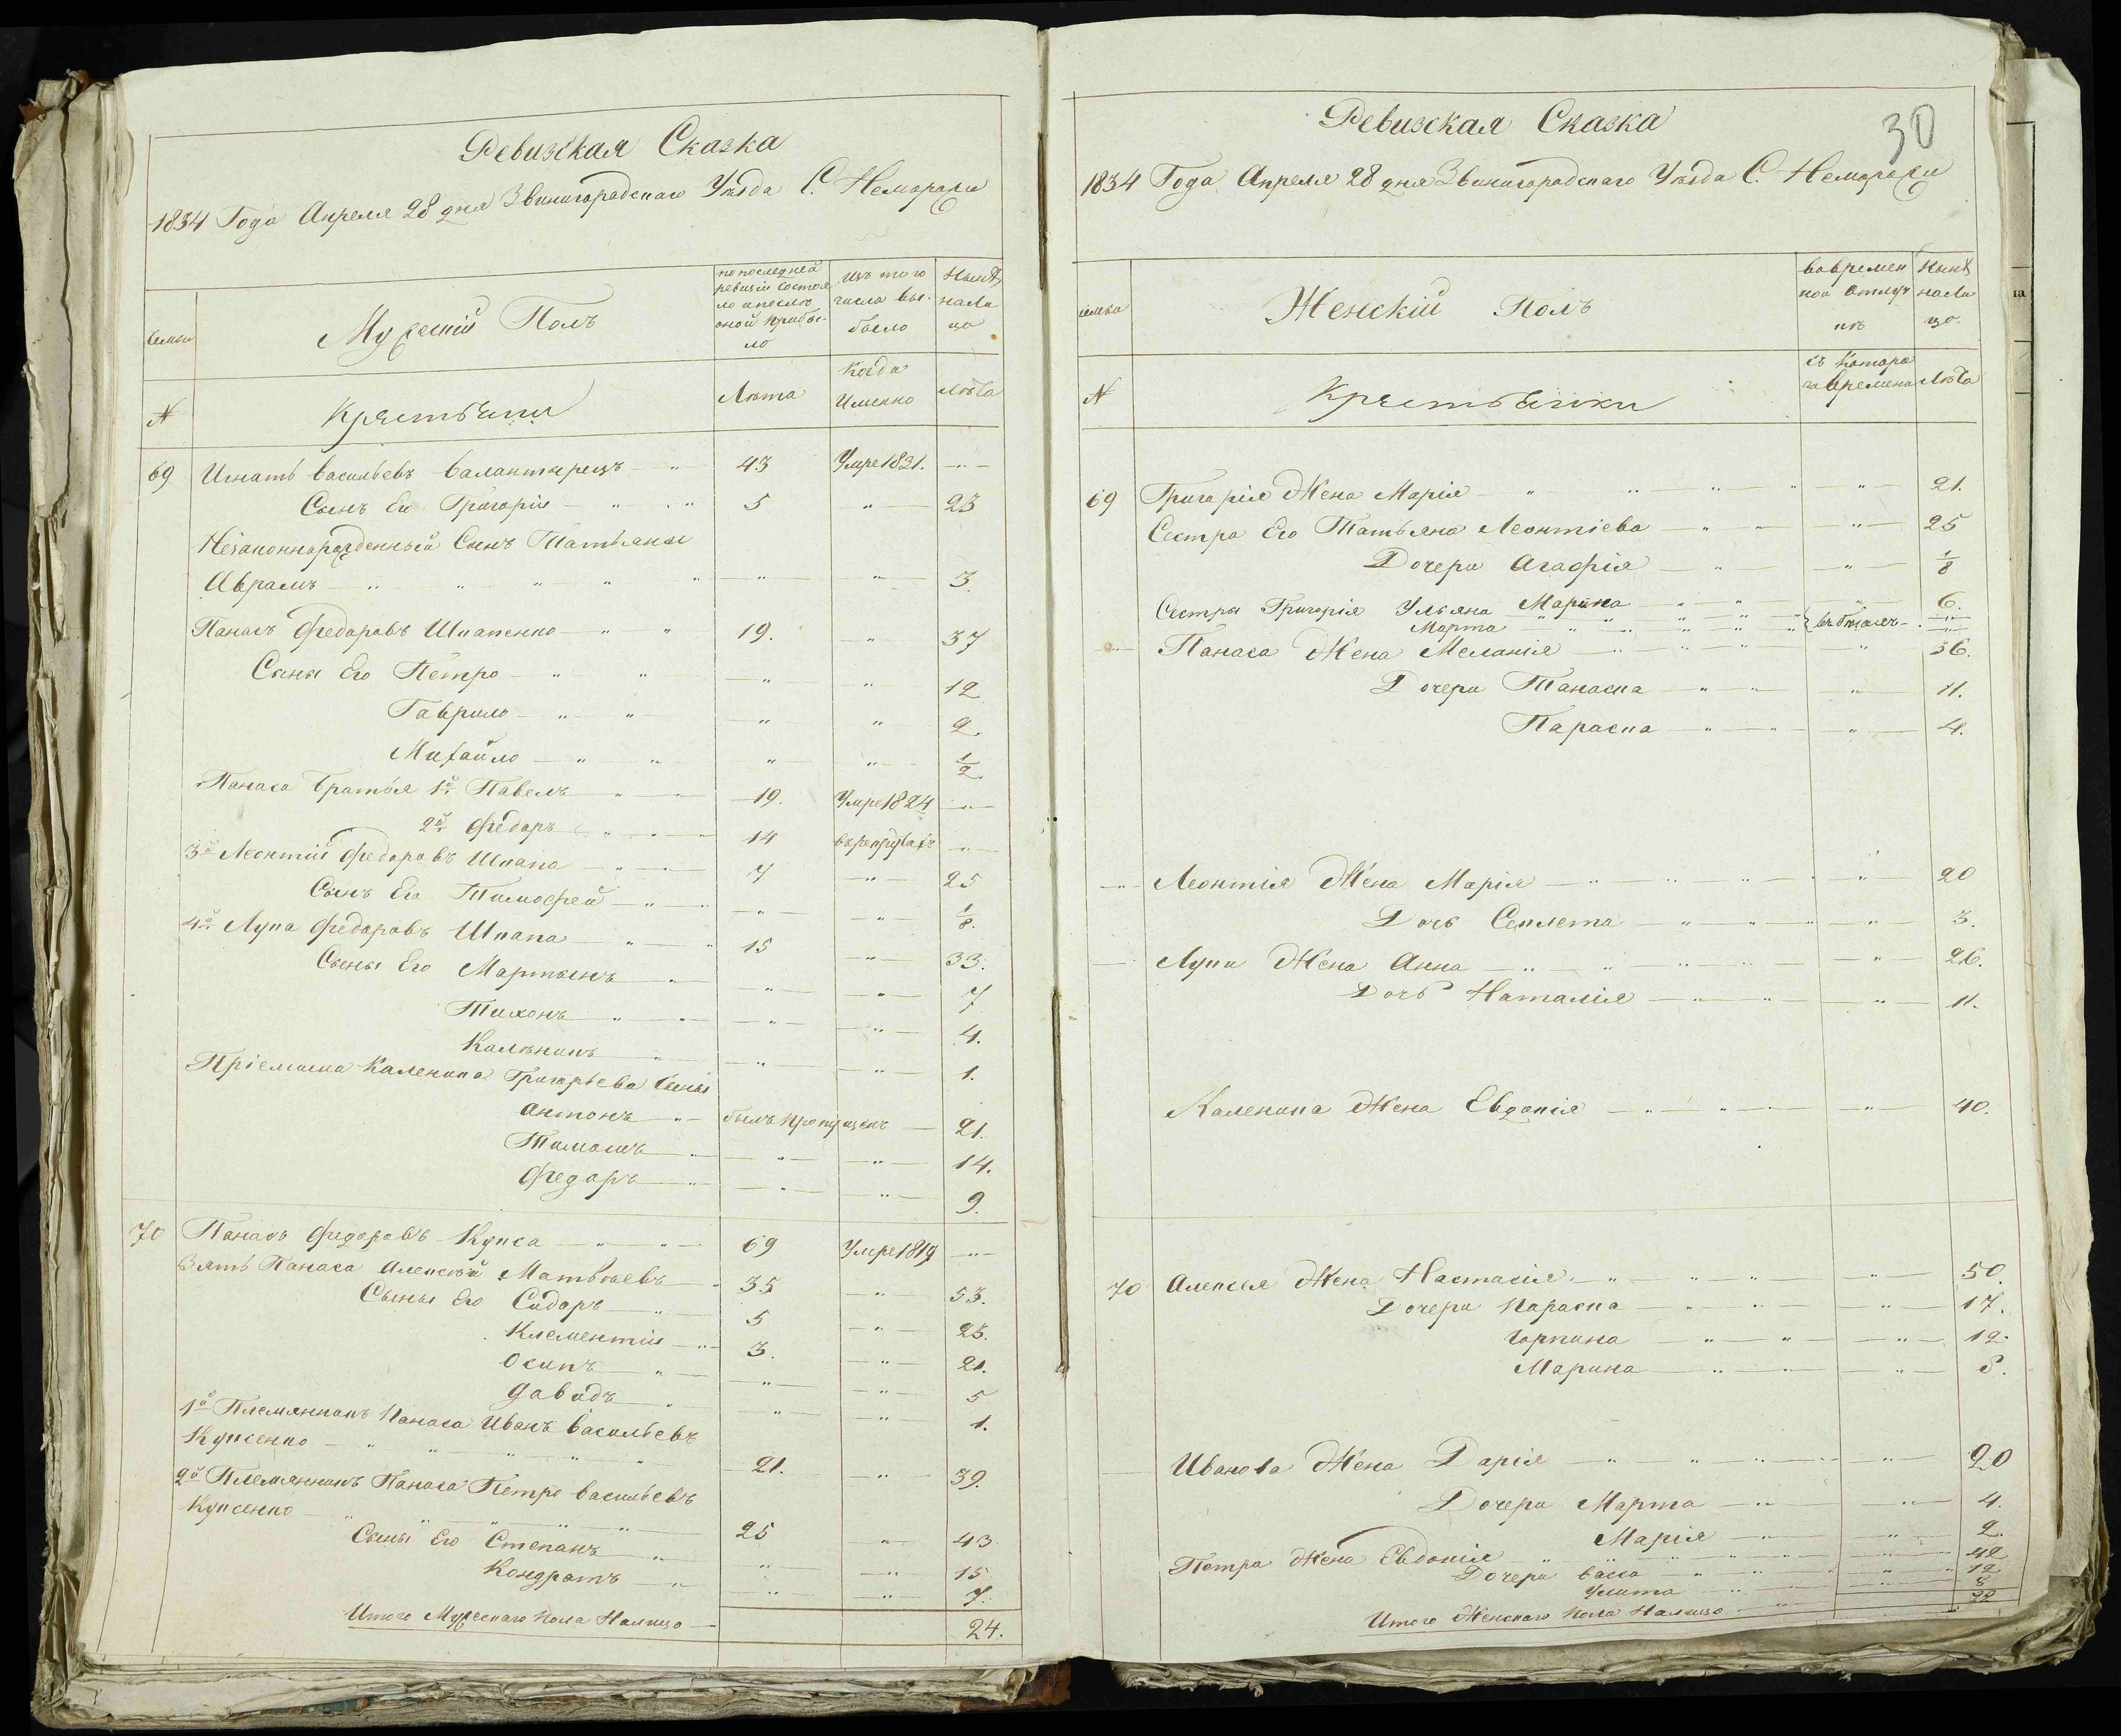 Ревизская Сказка
1834 Года Апреля 28 дня Звинигородскаго Уѣзда С. Неморожи
Семьи
Мужескій Полъ
по последней
ревизіи состоя
ло и после
оной прибы-
ло
Изъ того
числа вы-
было
Нынѣ
на Ли
цо
№
Крестьяни
Лѣта
Когда
Именно
Лѣта
69 Игнатъ Васильевъ 43 Умре 1831.
Сынъ Его Григорій 5 23
Незаконнорожденный Сынъ Татьяны
Аврамъ 3
Панасъ Федоровъ Шпаченко 19. 37
Сыны Его Петро 12
Гаврило 9.
Михайло 1/2.
Панаса Братья 1й Павелъ 19. Умре 1824
2й Федоръ 14 в рекрутахъ
3й Леонтій Федоровъ Шпака 7 25
Сынъ Его Тимофей 1/8.
4й Лупа Федоровъ Шпака 15 33.
Сыны Его Мартынъ 7
Тихонъ 4.
Калѣникъ 1.
Пріемыша Каленика Григорьева Сыны
Антонъ былъ пропущенъ 21.
Тимошъ 14.
Федоръ 9.
70 Панасъ Федоровъ Кукса 69 Умре 1819
Зять Панаса Алексѣй Матвѣевъ 35 53.
Сыны Его Сидоръ 5 23.
Клементій 3. 21.
Осипъ 5
Давидъ 1.
1й Племянникъ Панаса Иванъ Васильевъ
Куксенко 21. 39.
2й Племянникъ Панаса Петро Васильевъ
Куксенко 25 43
Сыны Его Степанъ 15
Кондратъ 7.
Итого Мужескаго пола Налицо 24.
30
Ревизская Сказка
1834 Года Апреля 28 дня Звинигородскаго Уѣзда С. Неморожи
Женскій Полъ
во времен
ной Отлуч
кѣ
Нынѣ
на Ли
цо.
№
Крестьянки
съ Которо
го времена
Лѣта
69 Григорія Жена Марія 21.
Сестра Его Татьяна Леонтіева 25
Дочери Агафія 1/8
Сестры Григорія Ульяна Марина 6.
Марта
Панаса Жена Меланія 36.
Дочери Танаска 11.
Параска 4.
Леонтія Жена Марія 20
Дочь Секлета 3.
Лупи Жена Анна 26.
Дочь Наталія 11.
Каленика Жена Евдокія 40.
70 Алексея Жена Настасія 50.
Дочери Параска 17.
Горпина 12.
Марина 8.
Иванова Жена Дарія 20
Дочери Марта 4.
Марія 2.
Петра Жена Евдокія 42
Дочери Васса 12
Улита
Итого Женскаго пола Налицо